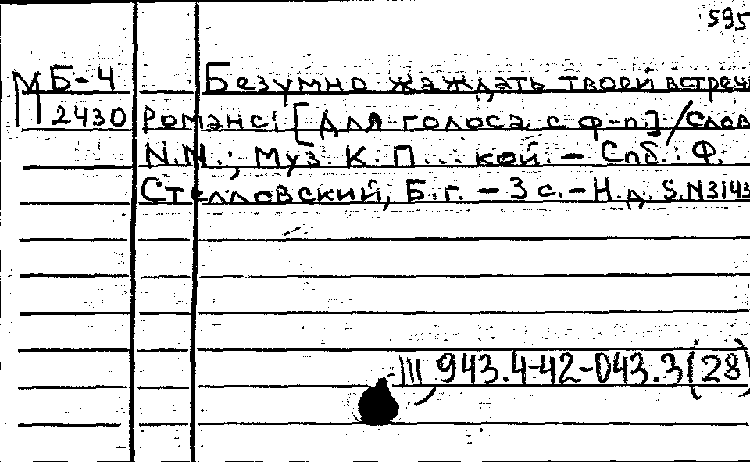 595
М Б-4 Безумно жаждать твоей встречи
2430 Романс: [Для голоса с ф-п] / Слов
N.N.; Муз. К. П... кой. – Спб.: Ф.
Стелловский, Б.г. – 3 с. – Н.д. S.N3143
III, 943.4-42-043.3(28)